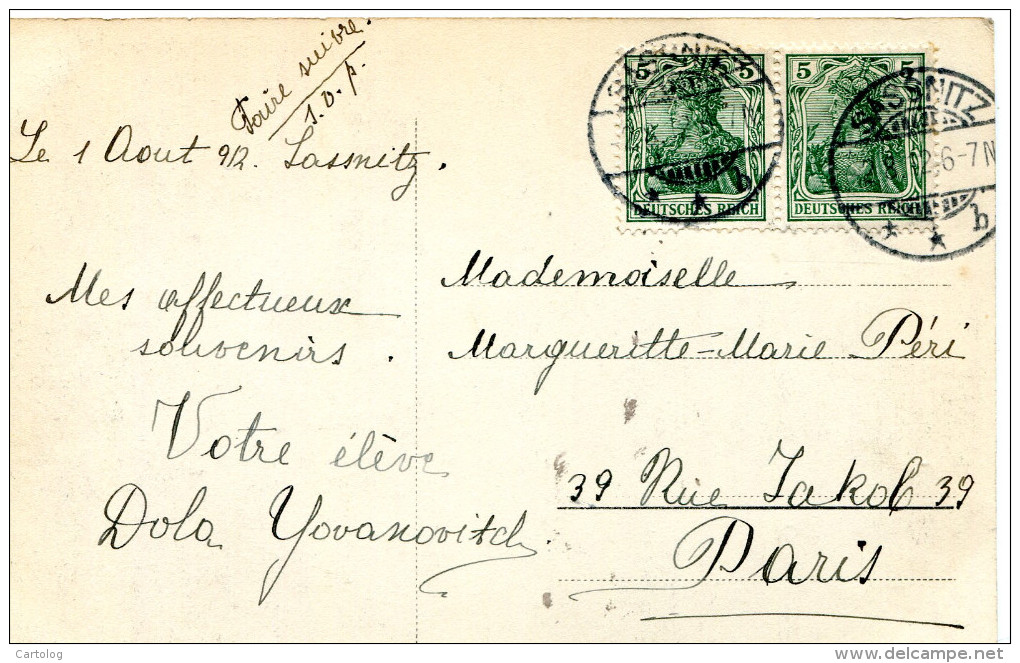 Faire suivre.
s. v. p.
Le 1 Aout 912. Sassnitz.
Mes affectueux
souvenirs.
Votre élève
Dola Yovanovitch
5 5
DEUTSCHES REICH
5
DEUTSCHES REICH
SASSNITZ
6-7N
b
b
Mademoiselle
Margueritte-Marie Péri
39 Rue Jakob 39
Paris
Cartolog
delcampe.net